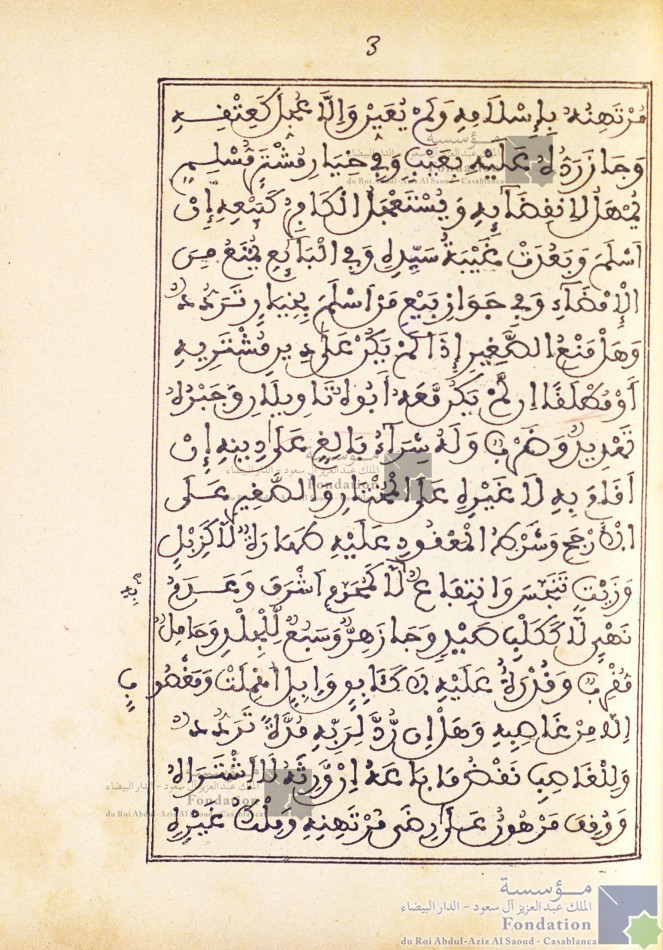 3
مُرْتَهِنُهُ بِإِسْلَامِهِ وَلَمْ يُعَيَّنْ وَإِلَّا عُجِّلَ كَعِتْقِهِ
وَجَازَ رَدُّهُ عَلَيْهِ بِعَيْبٍ وَفِي خِيَارِ مُشْتَرٍ مُسْلِمٍ
يُمْهَلُ لِانْقِضَائِهِ وَيُسْتَعْجَلُ الْكَافِرُ كَبَيْعِهِ إِنْ
أَسْلَمَ وَبَعُدَتْ غَيْبَةُ سَيِّدِهِ وَفِي الْبَائِعِ يُمْنَعُ مِنَ
الْإِمْضَاءِ وَفِي جَوَازِ بَيْعِ مَنْ أَسْلَمَ بِخِيَارٍ تَرَدُّدٌ
وَهَلْ مَنْعُ الصَّغِيرِ إِذَا لَمْ يَكُنْ عَلَى دِينِ مُشْتَرِيهِ
أَوْ مُطْلَقًا إِنْ لَمْ يَكُنْ مَعَهُ أَبُوهُ تَأْوِيلَانِ وَجَبْرُهُ
تَهْدِيدٌ وَضَرْبٌ وَلَهُ شِرَاءُ بَالِغٍ عَلَى دِينِهِ إِنْ
أَقَامَ بِهِ لَا غَيْرِهِ عَلَى الْمُخْتَارِ وَالصَّغِيرِ عَلَى
الْأَرْجَحِ وَشُرِطَ لِلْمَعْقُودِ عَلَيْهِ طَهَارَةٌ لَا كَزِبْلٍ
وَزَيْتٍ تَنَجَّسَ وَانْتِفَاعٌ لَا كَمُحَرَّمٍ أَشْرَفَ وَعَدَمُ
نَهْيٍ لَا كَكَلْبِ صَيْدٍ وَجَازَ هِرٌّ وَسَبُعٌ لِلْجِلْدِ وَحَامِلٌ
مُقْرِبٌ وَقُدْرَةٌ عَلَيْهِ لَا كَآبِقٍ وَإِبِلٍ أُهْمِلَتْ وَمَغْصُوبٍ
إِلَّا مِنْ غَاصِبِهِ وَهَلْ إِنْ رُدَّ لِرَبِّهِ مُدَّةً تَرَدُّدٌ
وَلِلْغَاصِبِ نَقْضُ مَا بَاعَهُ إِنْ وَرِثَهُ لَا اشْتَرَاهُ
وَوُقِفَ مَرْهُونٌ عَلَى رِضَى مُرْتَهِنِهِ وَمِلْكُ غَيْرِهِ
مؤسسة
الملك عبد العزيز آل سعود - الدار البيضاء
Fondation
du Roi Abdul-Aziz Al Saoud - Casablanca